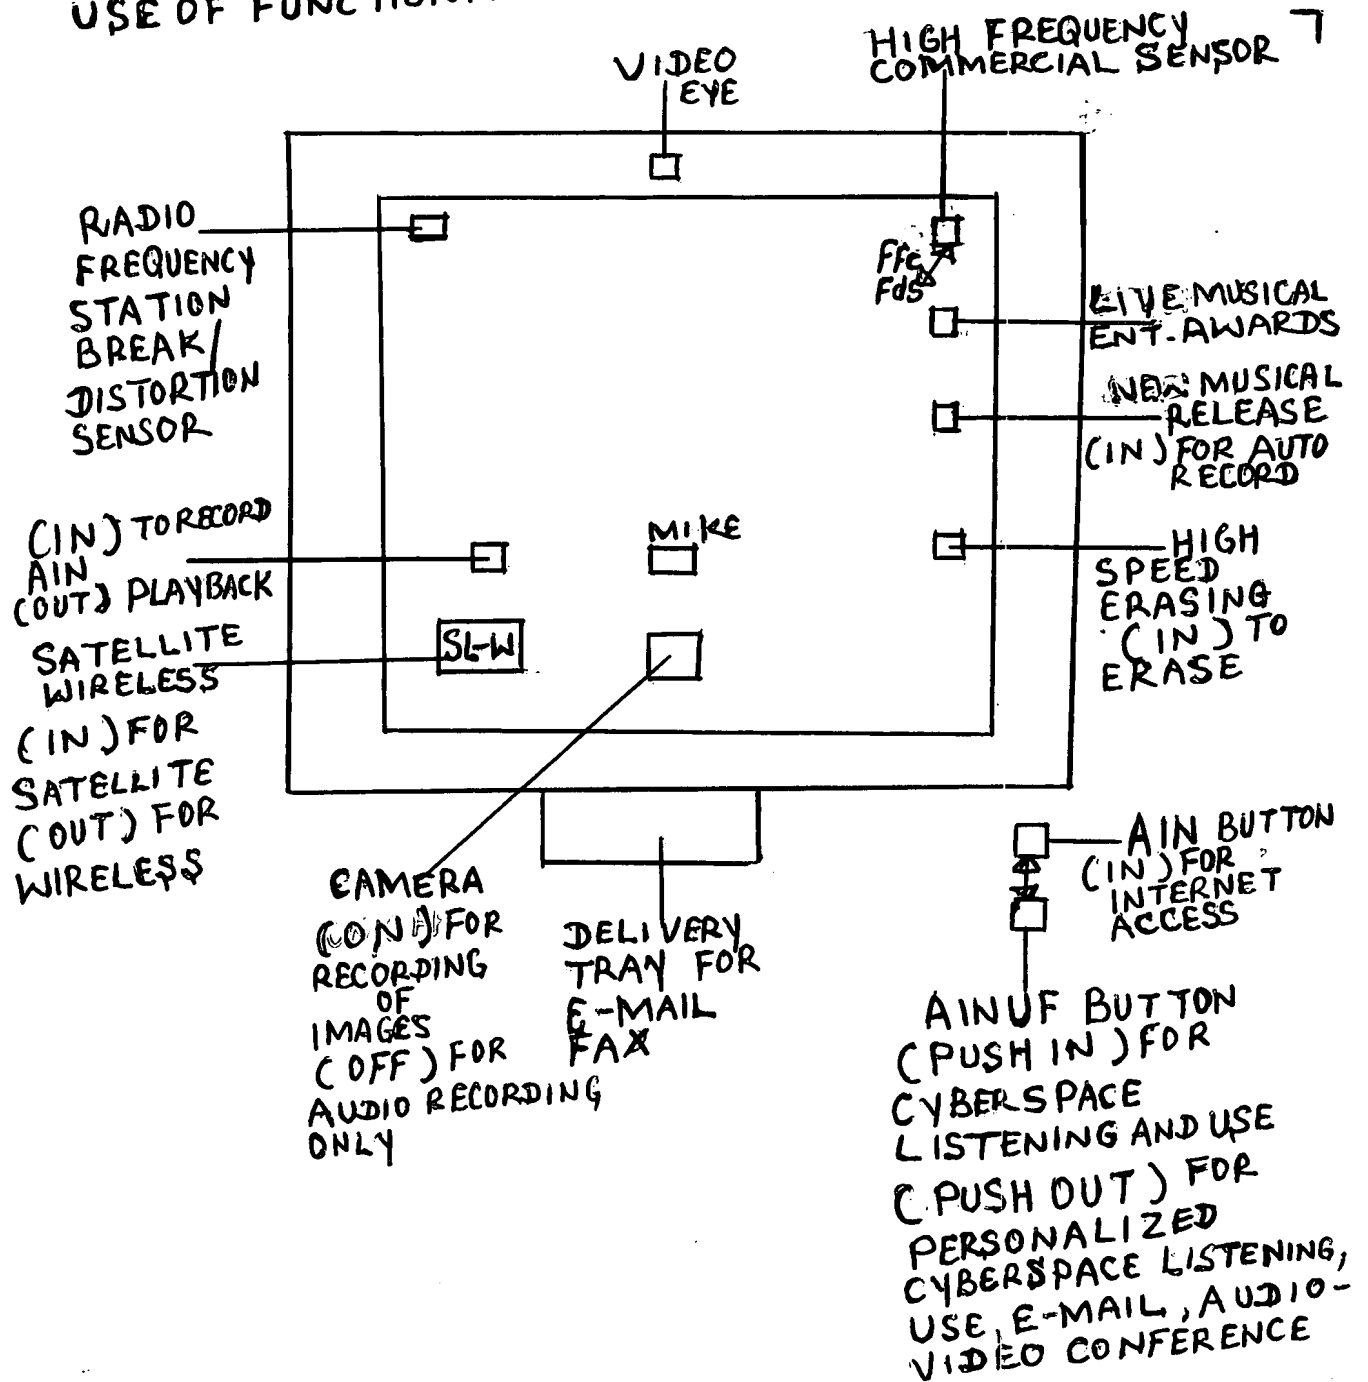 USE OF
VIDEO
EYE
HIGH FREQUENCY
COMMERCIAL SENSOR
7
RADIO
FREQUENCY
STATION
BREAK/
DISTORTION
SENSOR
Ffc
Fds
LIVE MUSICAL
ENT. AWARDS
NEW MUSICAL
RELEASE
(IN) FOR AUTO
RECORD
(IN) TO RECORD
AIN
(OUT) PLAYBACK
MIKE
HIGH
SPEED
ERASING
(IN) TO
ERASE
SATELLITE
WIRELESS
(IN) FOR
SATELLITE
(OUT) FOR
WIRELESS
SL-W
CAMERA
(ON) FOR
RECORDING
OF
IMAGES
(OFF) FOR
AUDIO RECORDING
ONLY
DELIVERY
TRAY FOR
E-MAIL
FAX
AIN BUTTON
(IN) FOR
INTERNET
ACCESS
AINUF BUTTON
(PUSH IN) FOR
CYBERSPACE
LISTENING AND USE
(PUSH OUT) FOR
PERSONALIZED
CYBERSPACE LISTENING,
USE, E-MAIL, AUDIO-
VIDEO CONFERENCE